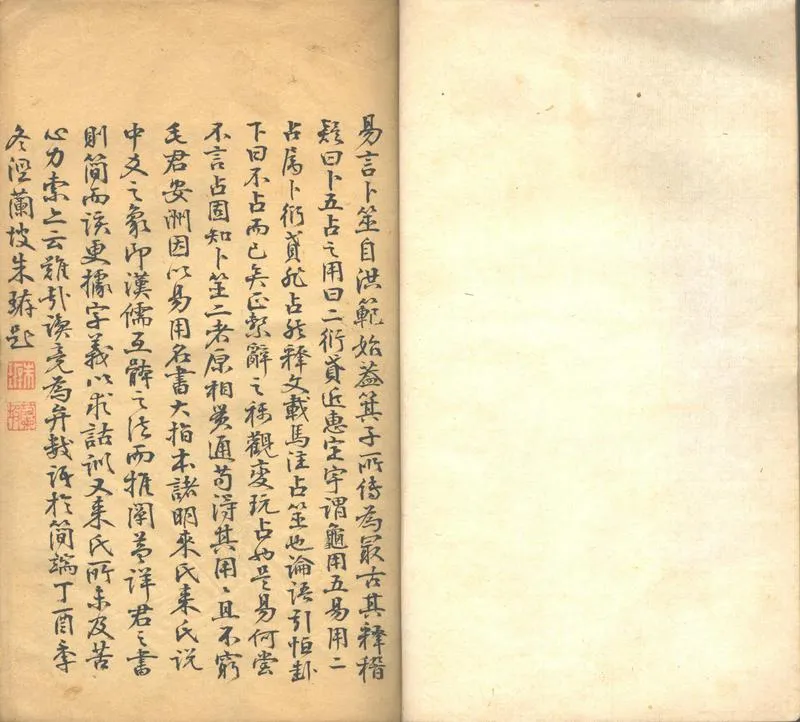 易言卜筮自洪範始蓋箕子所傳為最古其釋稽
疑曰卜五占之用曰二衍貣近惠定宇謂龜用五易用二
占屬卜衍貣非占然釋文載馬注占筮也論語引恒卦
下曰不占而已矣正繫辭之稱觀變玩占也是易何嘗
不言占固知卜筮二者原相貫通苟得其用〻且不窮
毛君安洲因以易用名書大指本諸明來氏來氏說
中爻之象即漢儒互體之法而推闡益詳君之書
則簡而該更據字義以求詁訓又來氏所未及苦
心力索之云難哉讀竟為弁數語於簡端丁酉季
冬涇蘭坡朱珔題